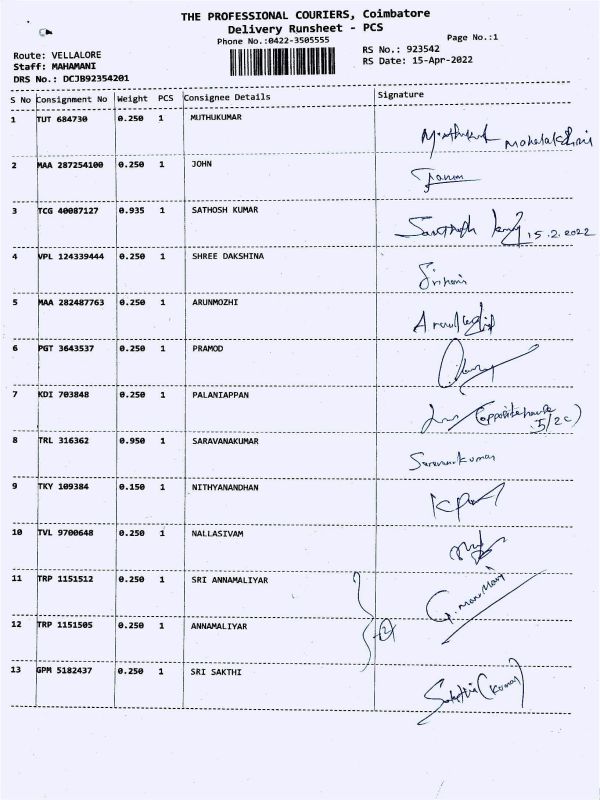 THE PROFESSIONAL COURIERS, Coimbatore
Delivery Runsheet - PCS
Phone No.:0422-3505555
Page No.:1
Route: VELLALORE
RS No.: 923542
Staff: MAHAMANI
RS Date: 15-Apr-2022
DRS No.: DCJB92354201
S No Consignment No Weight PCS Consignee Details Signature
1 TUT 684730 0.250 1 MUTHUKUMAR
2 MAA 287254100 0.250 1 JOHN
3 TCG 40087127 0.935 1 SATHOSH KUMAR 15.2.2022
4 VPL 124339444 0.250 1 SHREE DAKSHINA
5 MAA 282487763 0.250 1 ARUNMOZHI
6 PGT 3643537 0.250 1 PRAMOD
7 KDI 703848 0.250 1 PALANIAPPAN (opposite house
5/2c)
8 TRL 316362 0.950 1 SARAVANAKUMAR Saravanakumar
9 TKY 109384 0.150 1 NITHYANANDHAN
10 TVL 9700648 0.250 1 NALLASIVAM
11 TRP 1151512 0.250 1 SRI ANNAMALIYAR
12 TRP 1151505 0.250 1 ANNAMALIYAR 2
13 GPM 5182437 0.250 1 SRI SAKTHI (Kumar)